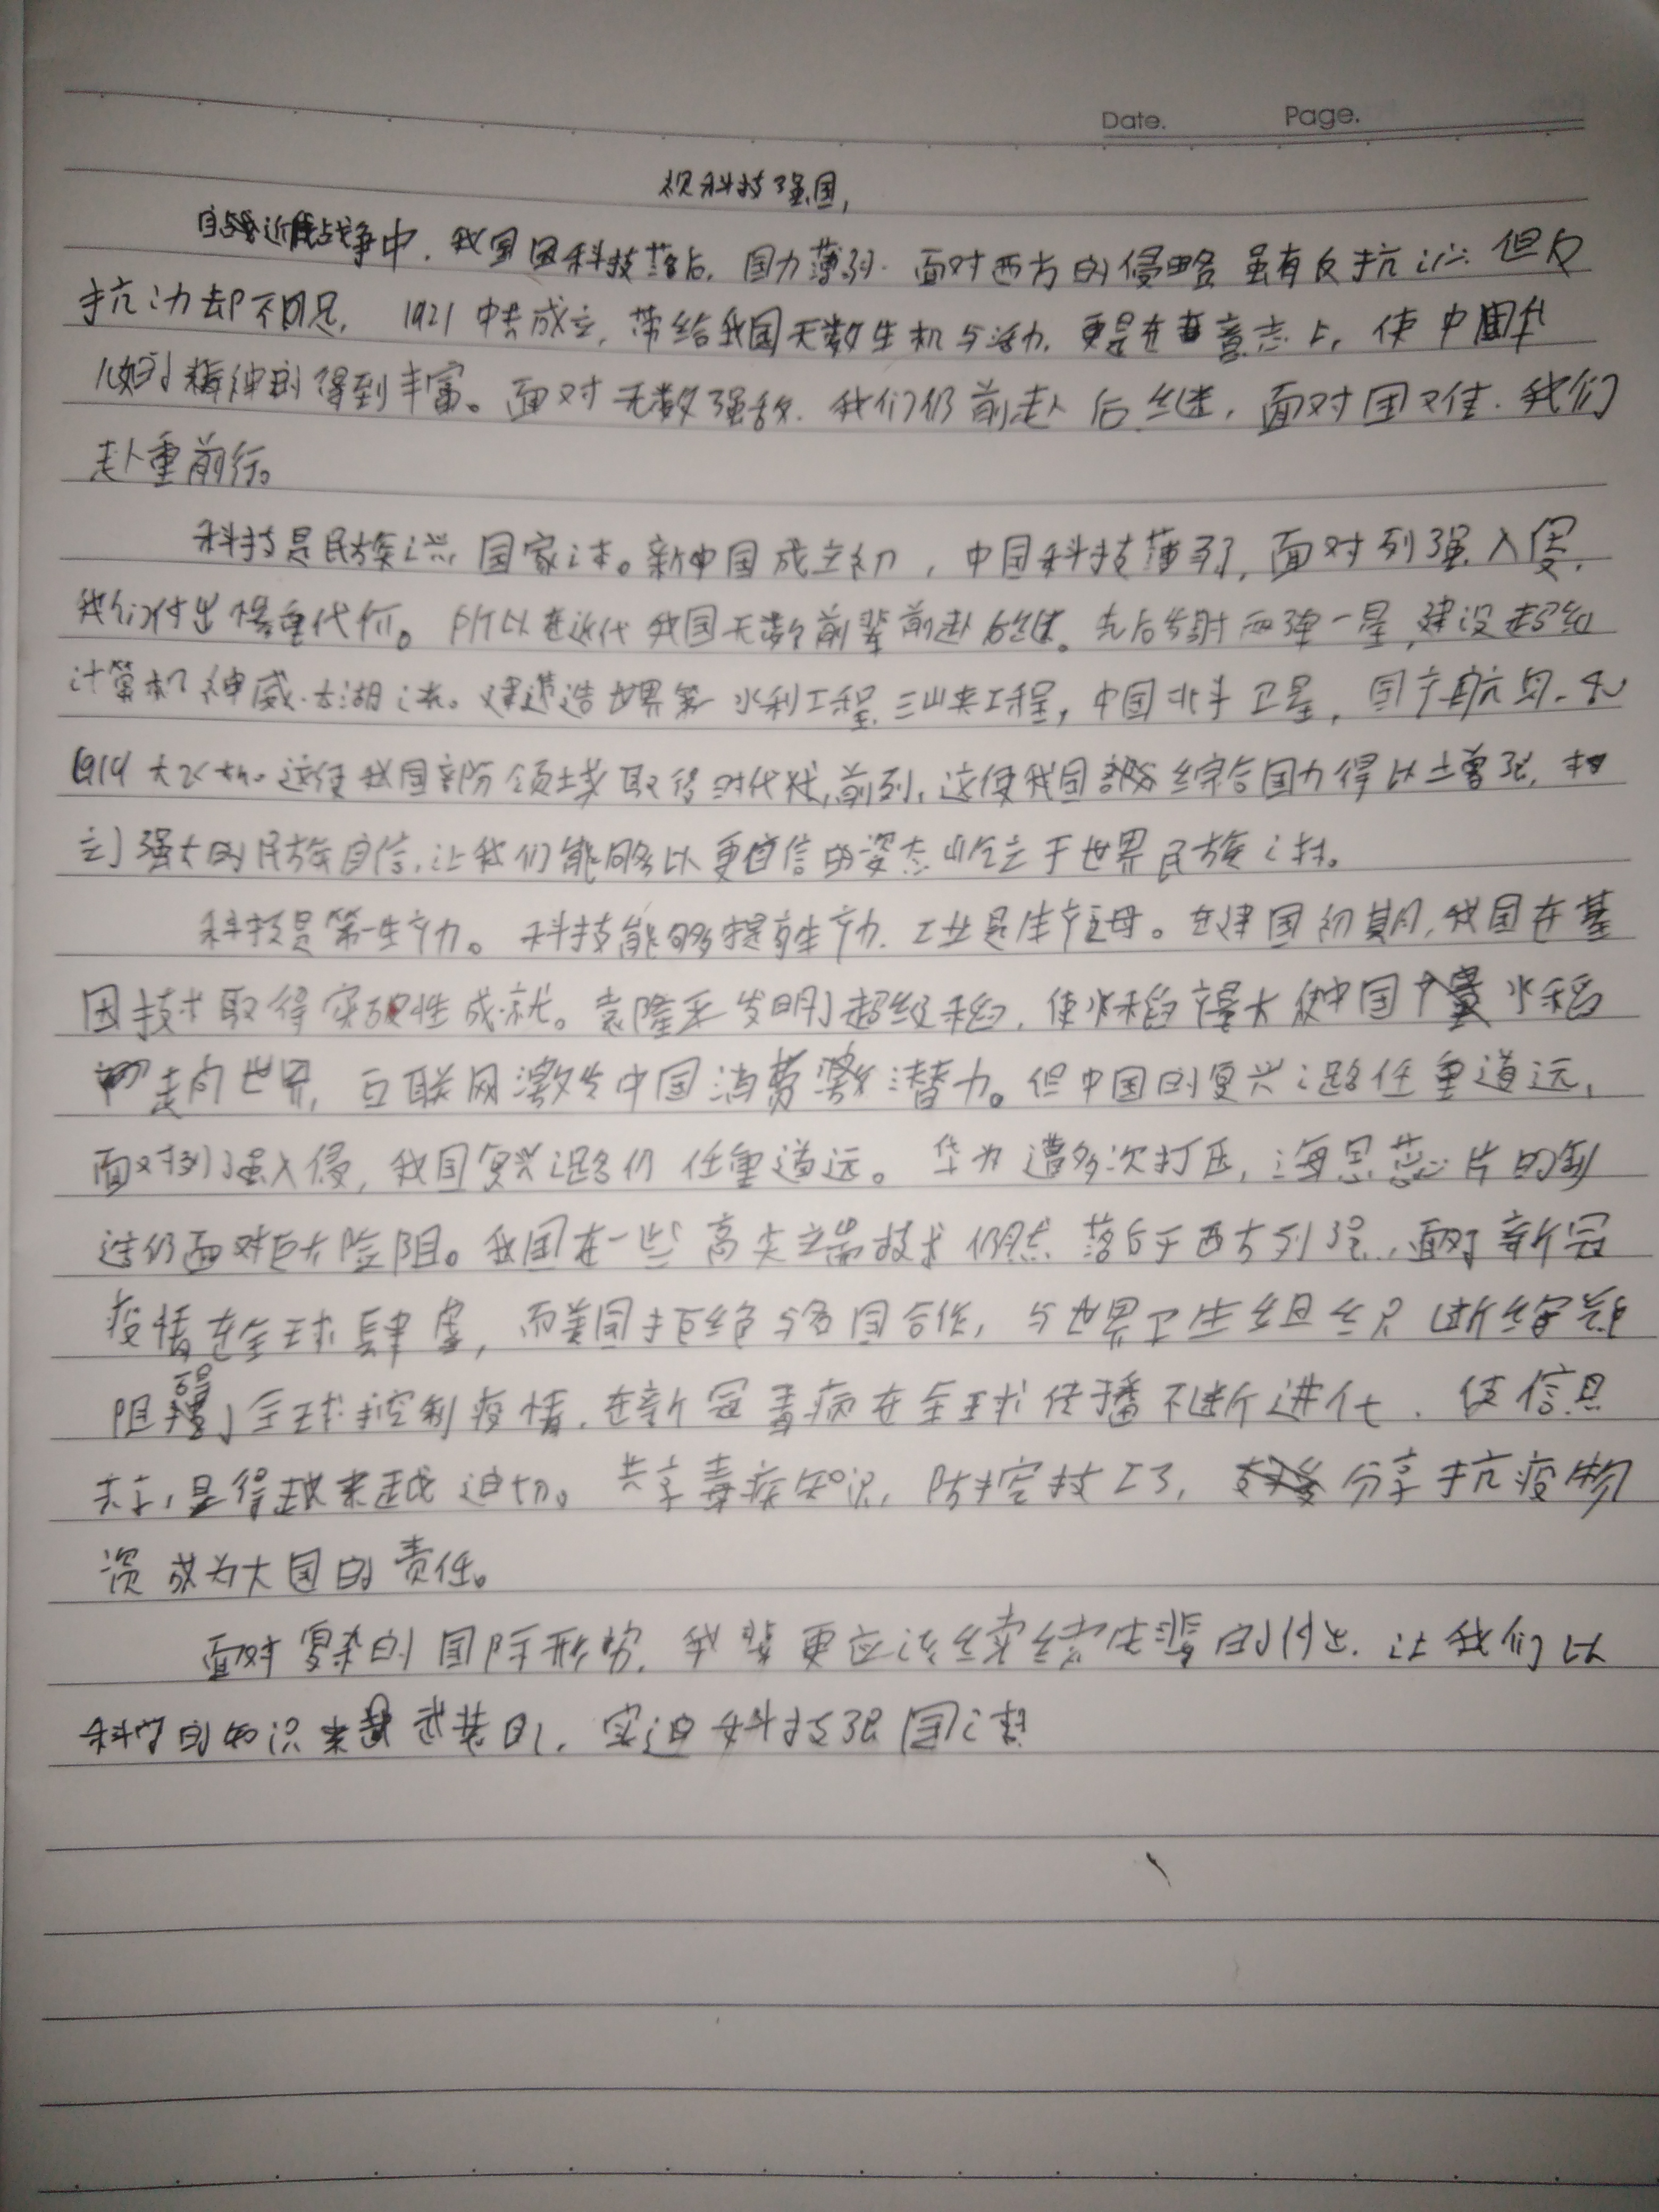 Date. Page.
视科技强国,
自近代战争中,我国因科技落后,国力薄弱.面对西方的侵略虽有反抗之心但反
抗之力却不足,1921中共成立,带给我国无数生机与活力,更是在意志上,使中国
的精神得到丰富。面对无数强敌.我们仍前赴后继,面对国难.我们
赴重前行。
科技是民族之 国家之本。新中国成立初,中国科技薄弱,面对列强入侵,
我们付出惨重代价。所以在近代我国无数前辈前赴后继。先后发射两弹一星,建设超级
计算机神威.太湖之光。建造世界第一水利工程三峡工程,中国北斗卫星,国产航母.和
C919大飞机。这使我国部分领域取得时代 前列,这使我国综合国力得以增强,树
立了强大的民族自信,让我们能够以更自信的姿态屹立于世界民族之林。
科技是第一生产力。科技能够提高生产力.工业是生产之母。在建国初期,我国在基
因技术取得突破性成就。袁隆平发明了超级稻,使水稻产量大 使中国水稻
走向世界,互联网激发中国消费潜力。但中国的复兴之路任重道远,
面对列强入侵,我国复兴之路仍任重道远。华为遭多次打压,海思芯片的制
造仍面对巨大险阻。我国在一些高尖端技术仍然落后于西方列强,面对新冠
疫情在全球肆虐,而美国拒绝与各国合作,与世界卫生组织断绝
阻碍了全球控制疫情.在新冠毒病在全球传播不断进化.使信息
共享,显得越来越迫切。共享毒疾知识,防控技工了,分享抗疫物
资成为大国的责任。
面对复杂的国际形势.我辈更应该继续 先辈的付出.让我们以
科学的知识来武装自己.实迫 科技强国之梦